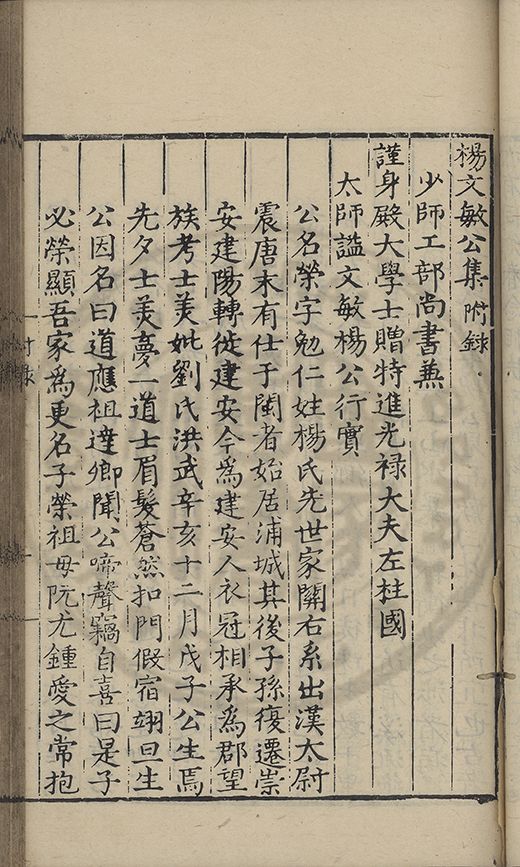 楊文敏公集附錄
少師工部尚書兼
謹身殿大學士贈特進光祿大夫左柱國
太師謚文敏楊公行實
公名榮字勉仁姓楊氏先世家關右系出漢太尉
震唐末有仕于閩者始居浦城其後子孫復遷崇
安建陽轉徙建安今為建安人衣冠相承為郡望
族考士美妣劉氏洪武辛亥十二月戊子公生焉
先夕士美夢一道士眉髮蒼然扣門假宿翊旦生
公因名曰道應祖達卿聞公啼聲竊自喜曰是子
必榮顯吾家為更名子榮祖母阮尤鍾愛之常抱